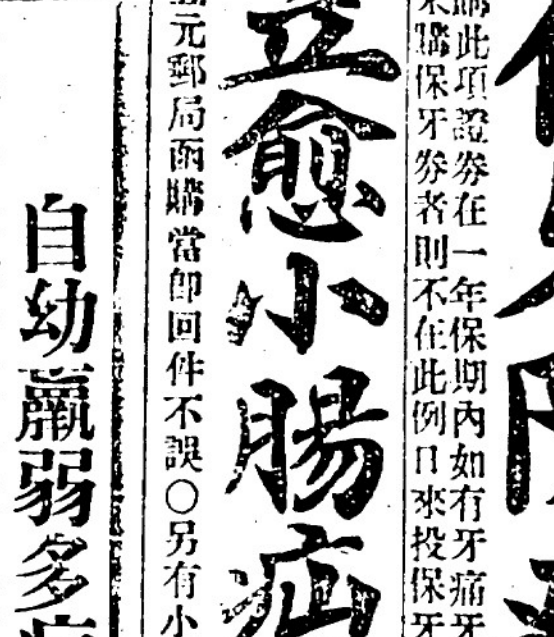 購此項證券在一年保期內如有牙痛牙
來購保牙券者則不在此例日來投保牙
立愈小腸疝
元郵局函購當即回件不誤〇另有小
自幼羸弱多病